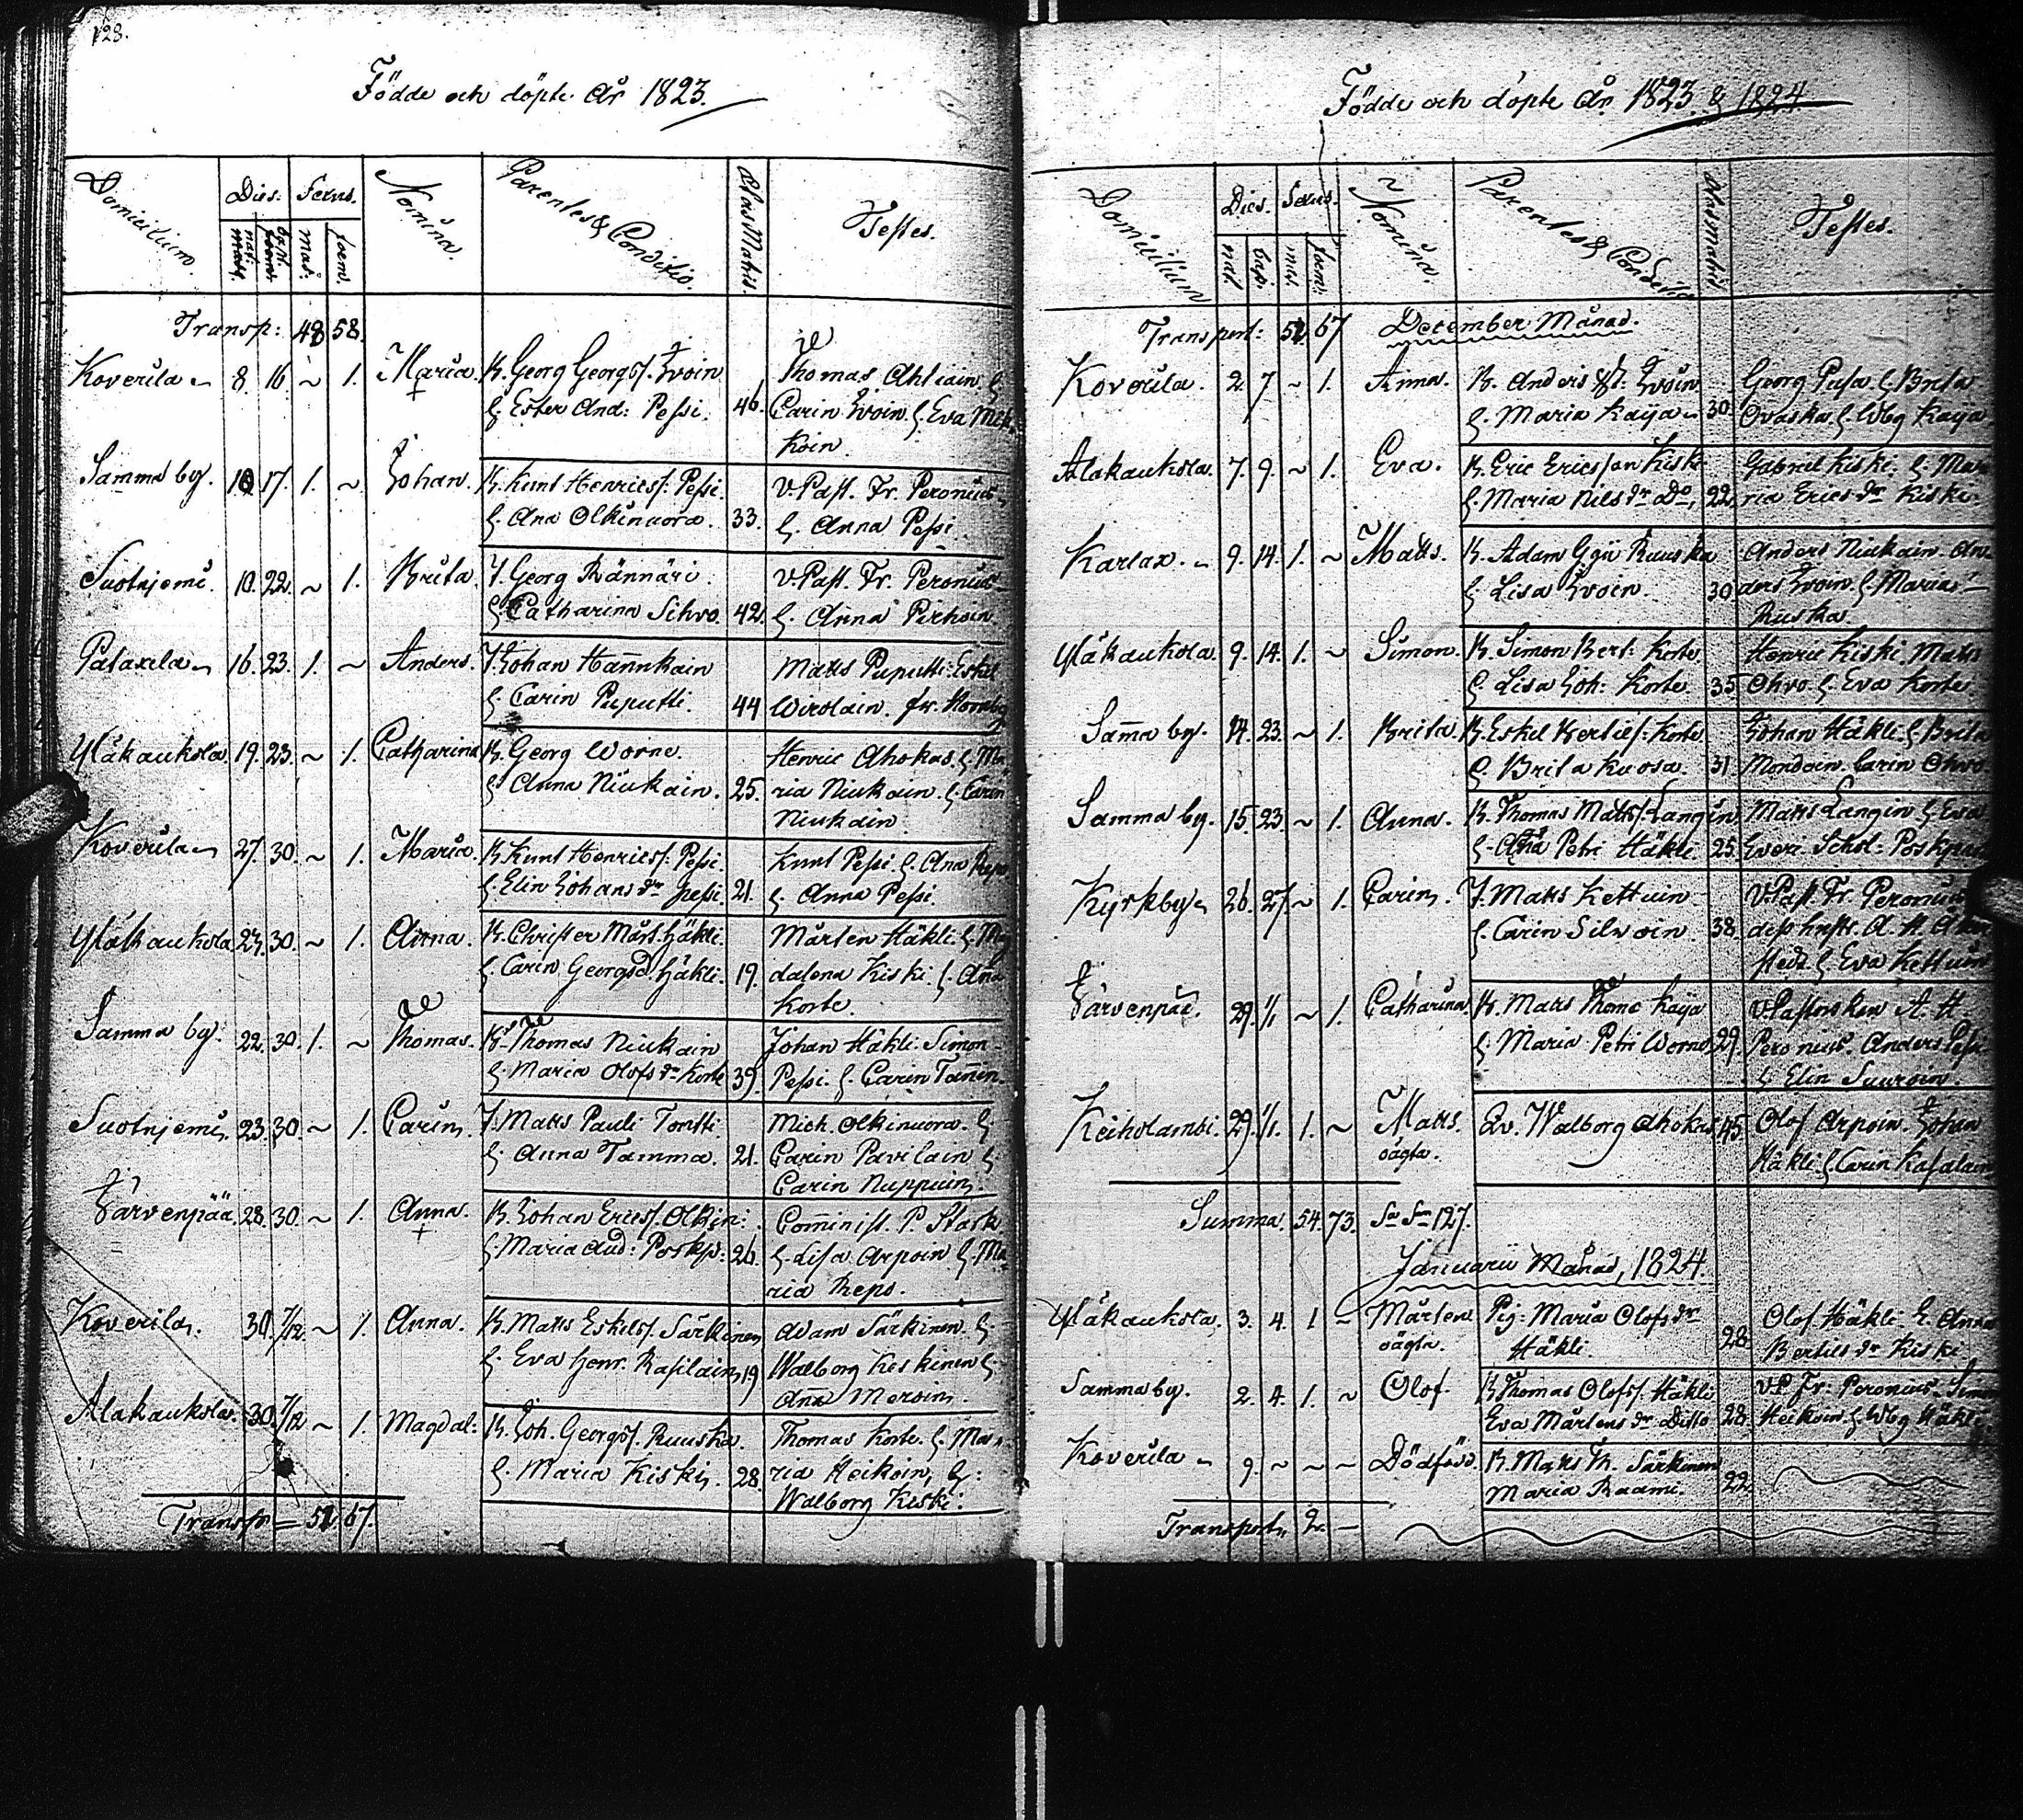 128.
Födde och döpte År 1823.
Domicilium. Dies. Sexus. Nomina. Parentes & Conditio. Ætas Matris. Testes.
nat: bapt. mas: foem.
Transp: 48 58.
Koverila 8. 16 ~ 1. Maria. B. Georg Georgss. Ivoin Thomas Ahliain &
+ H. Ester And: Pessi. 46. Carin Ivoin. H. Eva Mik
koin.
Samma by. 10 17. 1. ~ Johan. B. Knut Henricss: Pessi. V. Past. Fr. Peronius
H. Ana Olkinuora. 33. H. Anna Pessi.
Suotnjemi. 10. 22. ~ 1. Brita. T. Georg Rännäri. V. Past. Fr. Peronius
H. Catharina Sihvo. 42. H. Anna Pirhoin.
16. 23. 1. ~ Anders. T. Johan Hannkain Matts Puputti. Eskel
H. Carin Puputti. 44 Wirolain. fr. Hornborg
Yläkaukola. 19. 23. ~ 1. Catharina B. Georg Worne. Henric Ahokas. H. Ma
H. Anna Niukain. 25. ria Niukain. H. Carin
Niukain
Koverila 27. 30. ~ 1. Maria. B. Knut Henricss: Pessi. Knut Pessi. H. Ana
H. Elin Johans dr Pessi. 21. H. Anna Pessi.
Yläkaukola 27. 30. ~ 1. Anna. B. Christer Mårt. Häkli. Mårten Häkli. H. Mag
H. Carin Georgsd. Häkli. 19. dalena Kiski. H. Ana
Korte.
Samma by. 22. 30. 1. ~ Thomas. B. Thomas Niukain Johan Häkli. Simon
H. Maria Olofs dr Korte 39. Pessi. H. Carin Tannin.
Suotnjemi. 23. 30. ~ 1. Carin. T. Matts Pauli Tontti. Mich. Olkinuora. H.
H. Anna Tamma. 21. Carin Pavilain H.
Carin Nuppuin.
Järvenpää. 28. 30. ~ 1. Anna. B. Johan Ericss. Olkin: Cominist. P. Stark
+ H. Maria And: Poskp: 26. H. Lisa Arpoin H. Ma
ria Reps.
Koverila. 30. 7/12. ~ 1. Anna. B. Matts Eskelss. Särkinen Adam Särkinen. H.
H. Eva Henr. Rasilain 19 Walborg Keskinen H.
Ana Moroin.
Alakaukola. 30. 7/12 ~ 1. Magdal: B. Joh. Georgss. Ruuska. Thomas Korte. H. Ma
H. Maria Kiski. 28. ria Heikoin. H:
Walborg Kiski.
Transp = 51 67.
Födde och döpte År 1823 & 1824
Domicilium Dies. Sexus. Nomina. Parentes & Conditio Ætas matris Testes.
nat. bap. mas. foem:
Transport: 51 67 December Månad.
Koverila. 2. 7 ~ 1. Anna. B. Anders Ivoin Georg Pusa H. Brita
H. Maria Kaÿa 30 Ovaska. H. Wbg Kaÿa
Alakaukola. 7. 9. ~ 1. Eva. B. Eric Ericsson Kiski Gabriel Kiski. H. Ma
H. Maria Nils dr Do, 22. ria Erics dr Kiski.
Karlax. 9. 14. 1. ~ Matts. B. Adam Ggii Ruuska Anders Niukain. An
H. Lisa Ivoin. 30 ders Ivoin. H. Maria
Ruska.
Yläkaukola. 9. 14. 1. ~ Simon. B. Simon Bert: Korte. Henric Kiski. Matts
H. Lisa Joh: Korte. 35 Ohvo. H. Eva Korte
Samma by. 14. 23. ~ 1. Brita. B. Eskel Bertilss: Korte Johan Häkli. H. Brita
H. Brita Kuosa. 31 Mondoin. Carin Ohvo.
Samma by. 15. 23. ~ 1. Anna. B. Thomas Matts. Langin Matts Langin H. Eva
H. Ana Petri Häkli. 25. Everi. Schol:
Kyrkby 26. 27. ~ 1. Carin. T. Matts Kettuin V. Past. Fr. Peronius
H. Carin Silvoin. 38. dess hustr. A. H.
H. Eva Kettuin
Järvenpää. 29. 1/1 ~ 1. Catharina. B. Matts Thome Kaÿa V Pastorskan A. H.
H. Maria Petri Worne 29. Peronius. Anders Pessi
H Elin Suuroin.
Keiholambi. 29. 1/1. 1. ~ Matts. Qv. Walborg Ahokas 45 Olof Arpoin. Johan
oägta. Häkli H Carin Kasalain
Summa. 54. 73. Sa Sm 127.
Januarii Månad, 1824.
Yläkaukola. 3. 4. 1 ~ Mårten Pig: Maria Olofs dr Olof Häkli. H. Anna
oägta. Häkli. 28. Bertils dr Kiski
Samma by. 2. 4. 1. ~ Olof. B. Thomas Olofss. Häkli V. P. Fr: Peronius. Simon
Eva Mårtens dr Ditto 28. Heikoin. H Wbg Häkli
Koverila 9. ~ ~ ~ Dödfödd. B. Matts Th. Särkinen
Maria Raami. 22.
Transport, 2. —